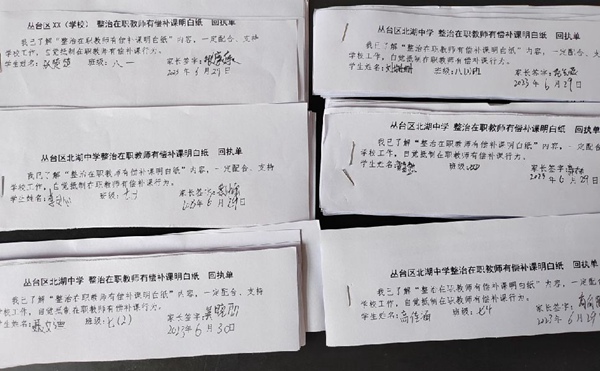 丛台区XX（学校） 整治在职教师有偿补课明白纸 回执单
我已了解“整治在职教师有偿补课明白纸”内容，一定配合、支持
学校工作，自觉抵制在职教师有偿补课行为。
学生姓名： 班级：八一 家长签字：
2023年6月29日
丛台区北湖中学 整治在职教师有偿补课明白纸 回执单
我已了解“整治在职教师有偿补课明白纸”内容，一定配合、支持
学校工作，自觉抵制在职教师有偿补课行为。
学生姓名： 班级： 家长签字：
2023年6月29日
丛台区北湖中学整治在职教师有偿补课明白纸 回执单
我已了解“整治在职教师有偿补课明白纸”内容，一定配合、支持
学校工作，自觉抵制在职教师有偿补课行为。
学生姓名： 班级： 家长签字：
年6月29日
丛台区北湖中学 整治在职教师有偿补课明白纸 回执单
我已了解“整治在职教师有偿补课明白纸”内容，一定配合、支持
学校工作，自觉抵制在职教师有偿补课行为。
学生姓名： 班级： 家长签字：
2023年6月29日
丛台区北湖中学 整治在职教师有偿补课明白纸 回执单
我已了解“整治在职教师有偿补课明白纸”内容，一定配合、支持
学校工作，自觉抵制在职教师有偿补课行为。
学生姓名： 班级：七(2) 家长签字：
2023年6月30日
丛台区北湖中学整治在职教师有偿补课明白纸 回执单
我已了解“整治在职教师有偿补课明白纸”内容，一定配合、支持
学校工作，自觉抵制在职教师有偿补课行为。
学生姓名： 班级：七4 家长签字：
2023年6月29日